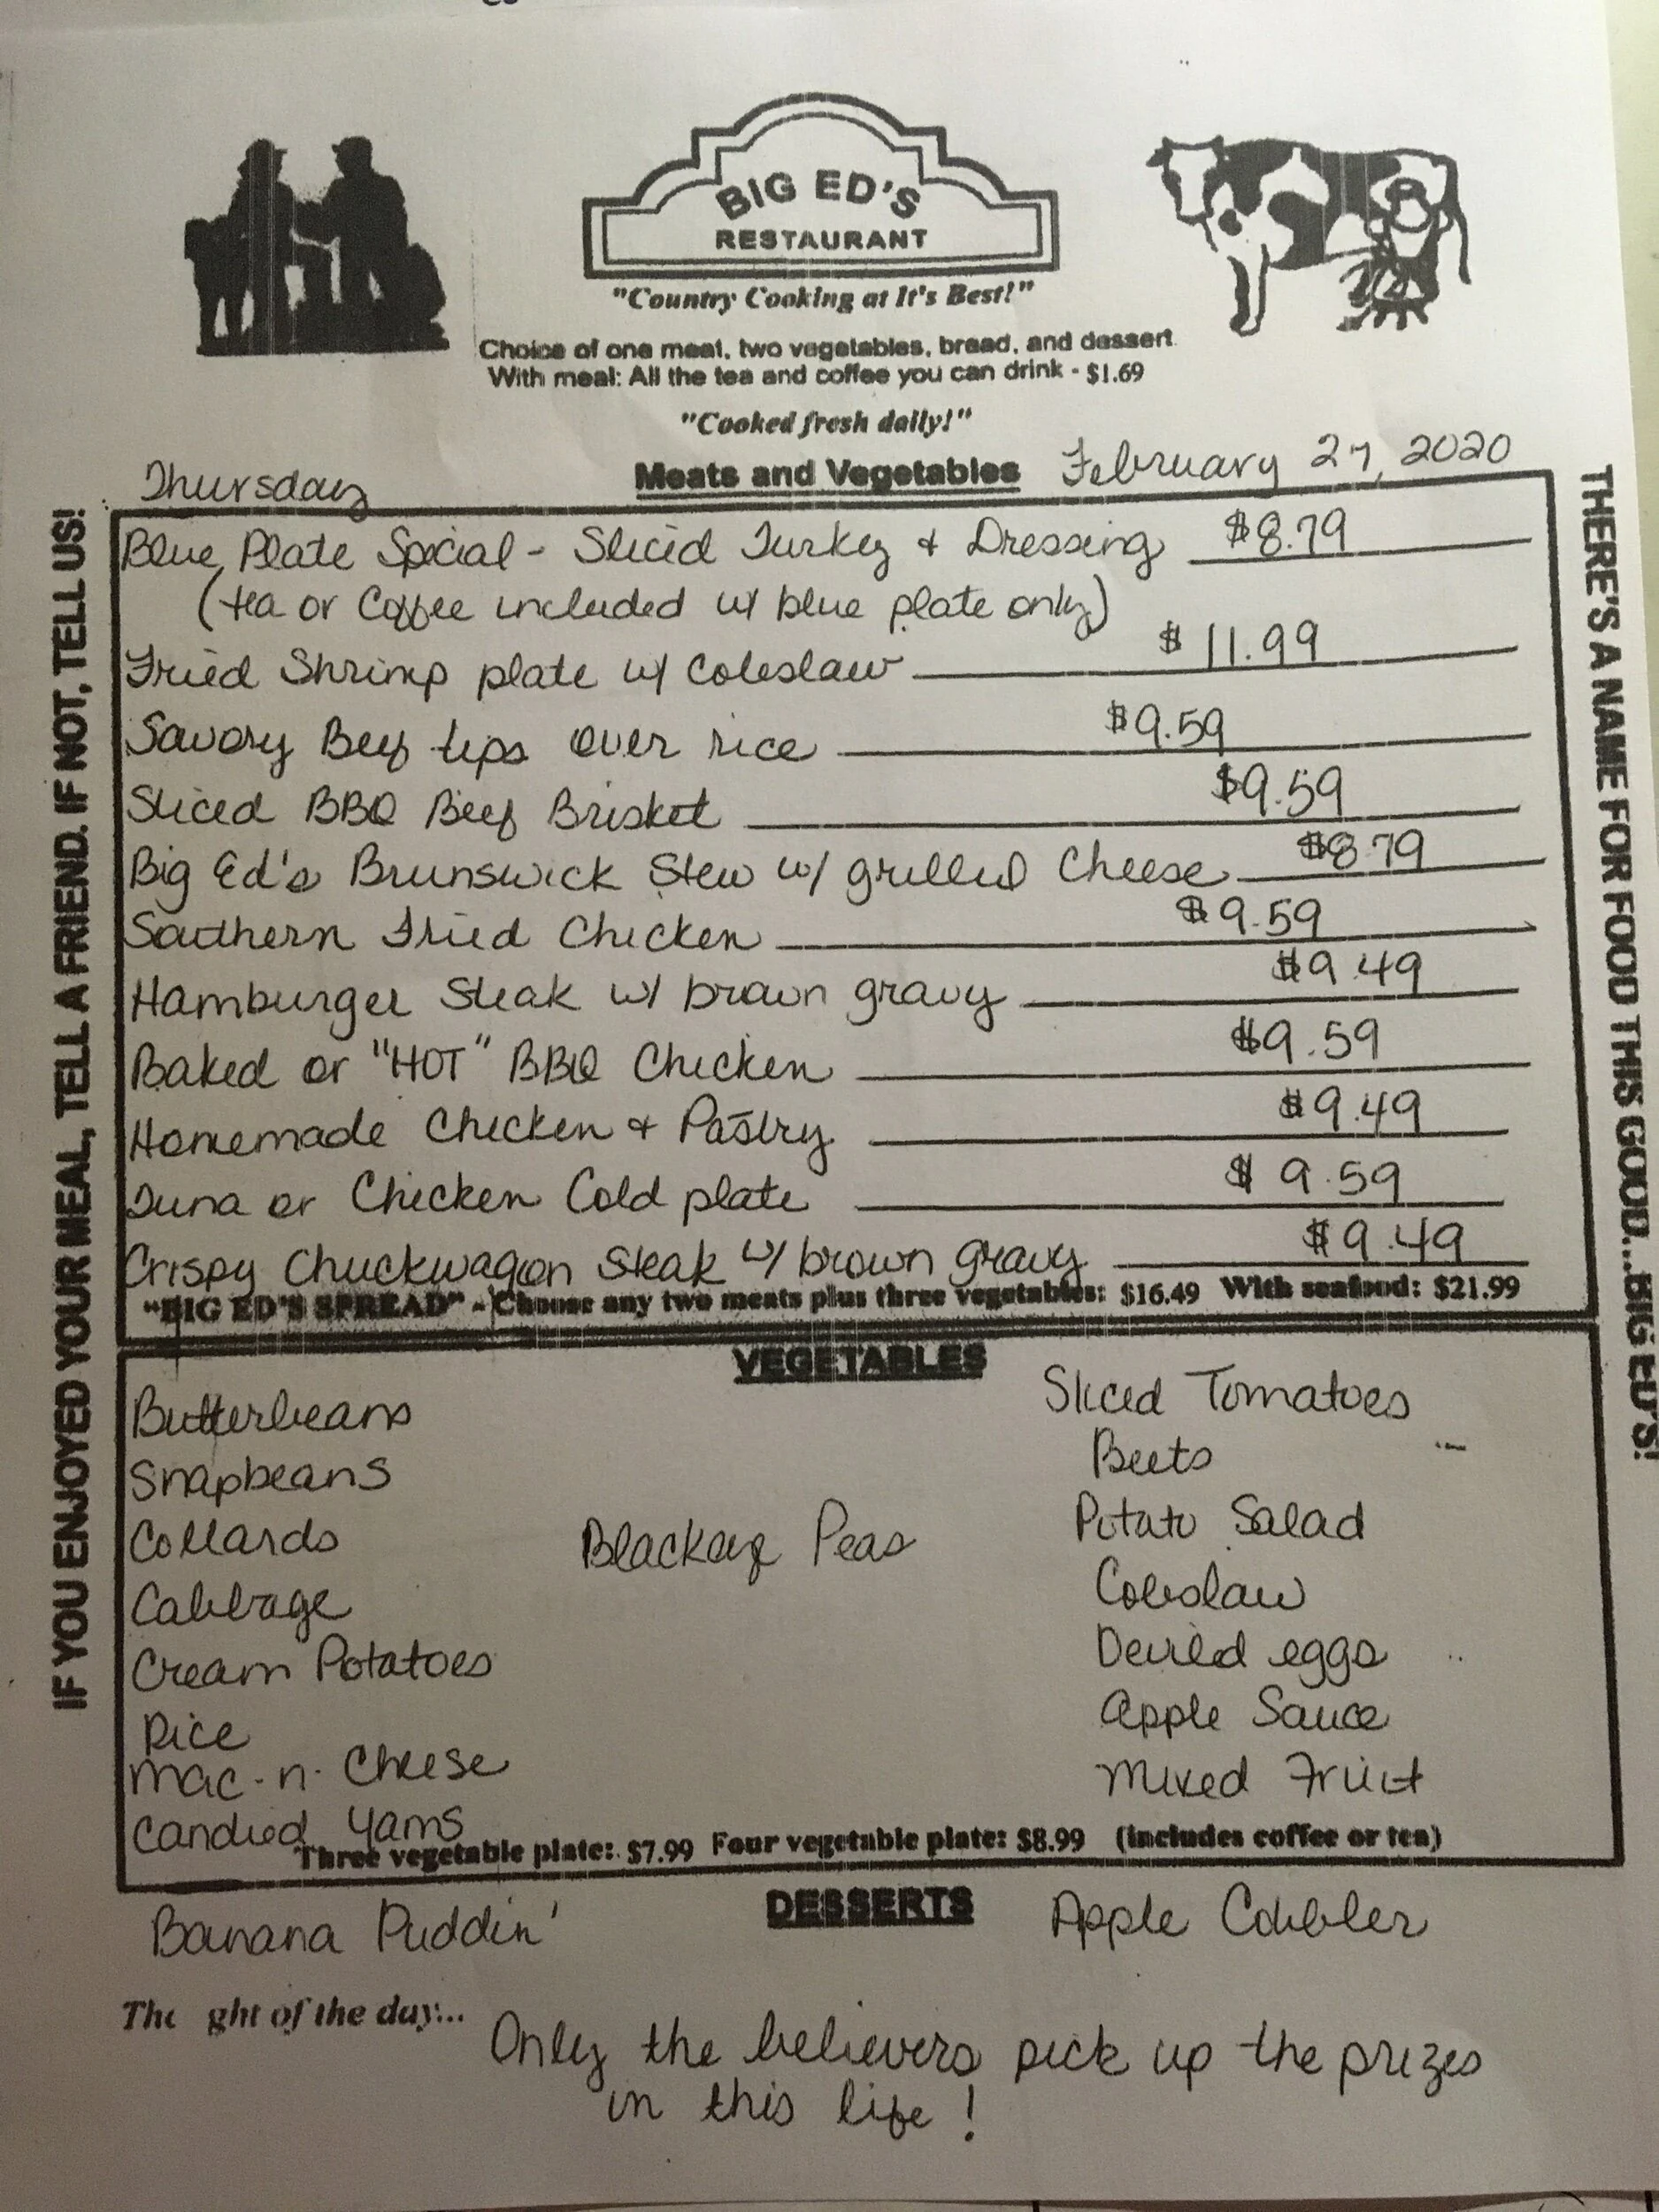 BIG ED'S
RESTAURANT
"Country Cooking at It's Best!"
Choice of one meat, two vegetables, bread, and dessert
With meal: All the tea and coffee you can drink - $1.69
"Cooked fresh daily!"
Thursday Meats and Vegetables February 27, 2020
Blue Plate Special - Sliced Turkey & Dressing $8.79
(tea or Coffee included w/ blue plate only)
Fried Shrimp plate w/ Coleslaw $11.99
Savory Beef tips over rice $9.59
Sliced BBQ Beef Brisket $9.59
Big Ed's Brunswick Stew w/ grilled Cheese $8.79
Southern Fried Chicken $9.59
Hamburger Steak w/ brown gravy $9.49
Baked or "HOT" BBQ Chicken $9.59
Homemade Chicken & Pastry $9.49
Tuna or Chicken Cold plate $9.59
Crispy Chuckwagon Steak w/ brown gravy $9.49
"BIG ED'S SPREAD" - Choose any two meats plus three vegetables: $16.49 With seafood: $21.99
VEGETABLES
Butterbeans
Snapbeans
Collards
Cabbage
Cream Potatoes
Rice
Mac-n-Cheese
Candied Yams
Blackeye Peas
Sliced Tomatoes
Beets
Potato Salad
Coleslaw
Deviled eggs
Apple Sauce
Mixed Fruit
Three vegetable plate: $7.99 Four vegetable plate: $8.99 (includes coffee or tea)
DESSERTS
Banana Puddin' Apple Cobbler
The ght of the day...
Only the believers pick up the prizes
in this life!
IF YOU ENJOYED YOUR MEAL, TELL A FRIEND. IF NOT, TELL US!
THERE'S A NAME FOR FOOD THIS GOOD...BIG ED'S!